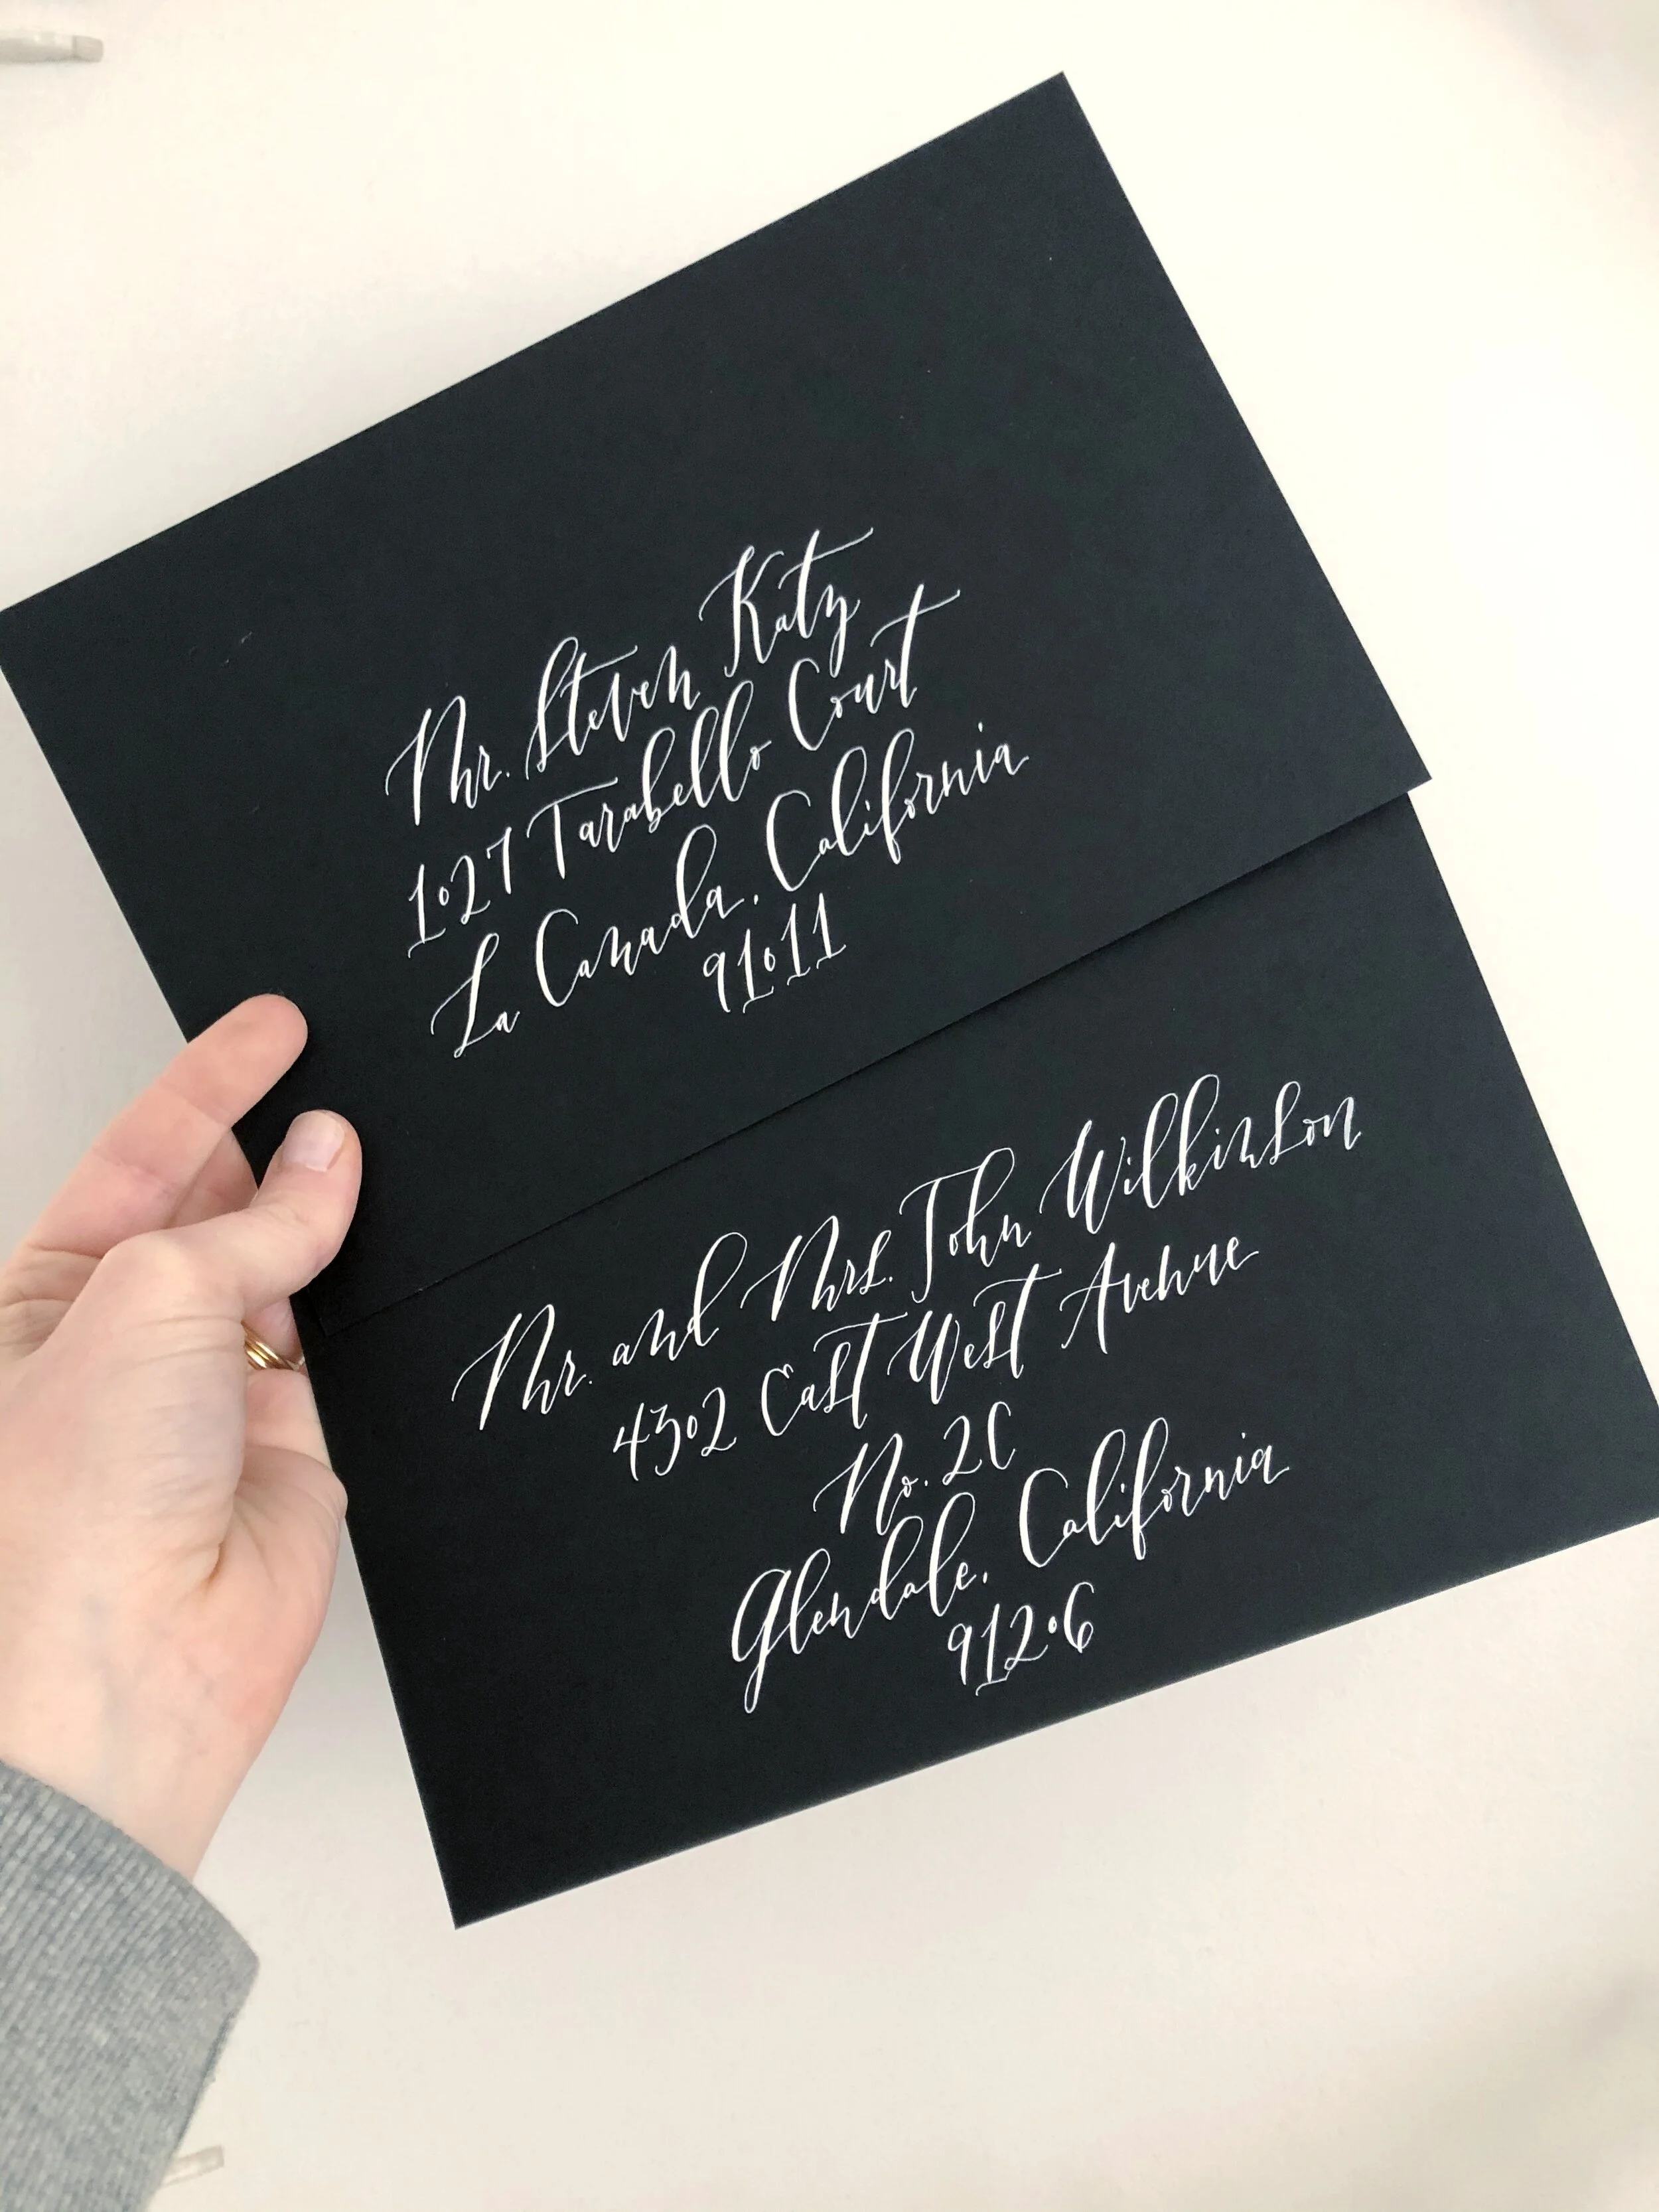 Mr. Steven Katz
1027 Tarabello Court
La Canada, California
91011
Mr. and Mrs. John Wilkinson
4302 East West Avenue
No. 2C
Glendale, California
91206